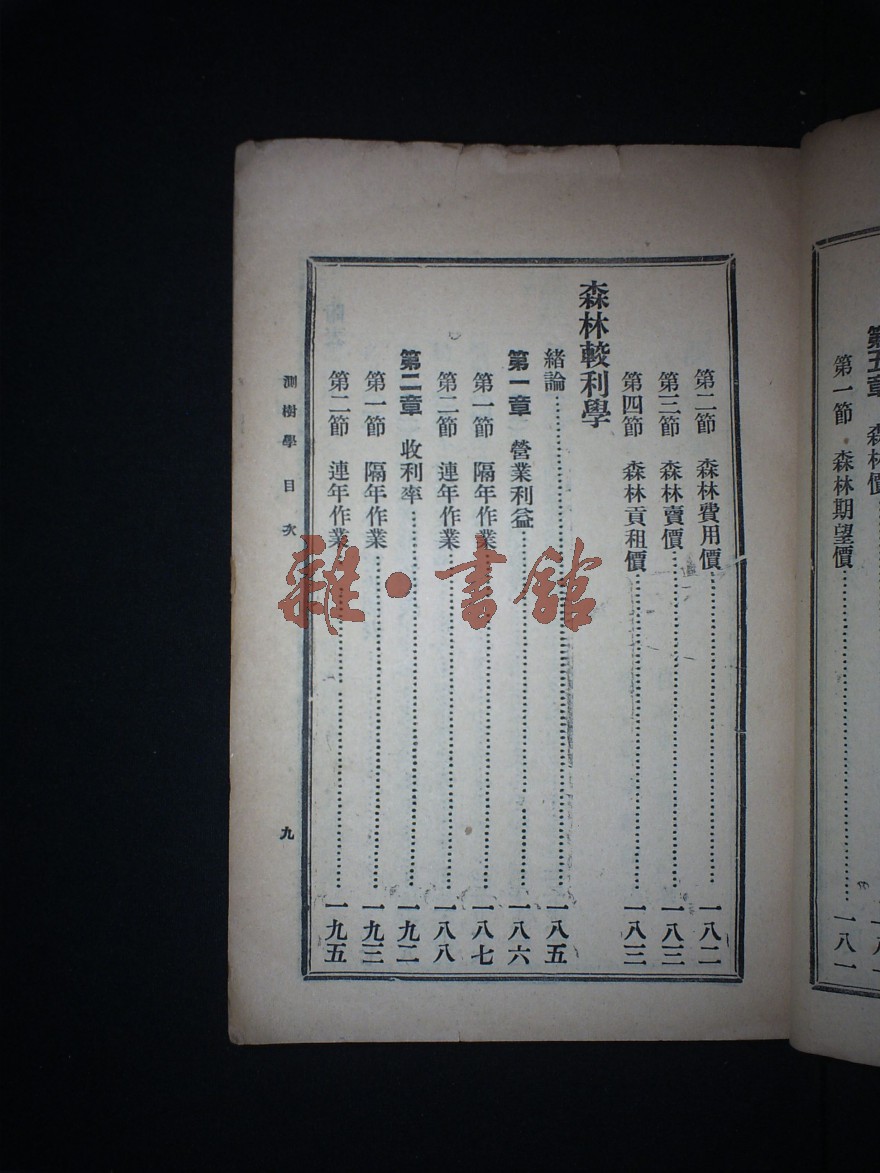 第五章　森林價
第一節　森林期望價……一八一
第二節　森林費用價……一八二
第三節　森林賣價……一八三
第四節　森林貢租價……一八三
森林較利學
緒論……一八五
第一章　營業利益……一八六
第一節　隔年作業……一八七
第二節　連年作業……一八八
第二章　收利率……一九二
第一節　隔年作業……一九三
第二節　連年作業……一九五
測樹學　目次
九
雜·書館